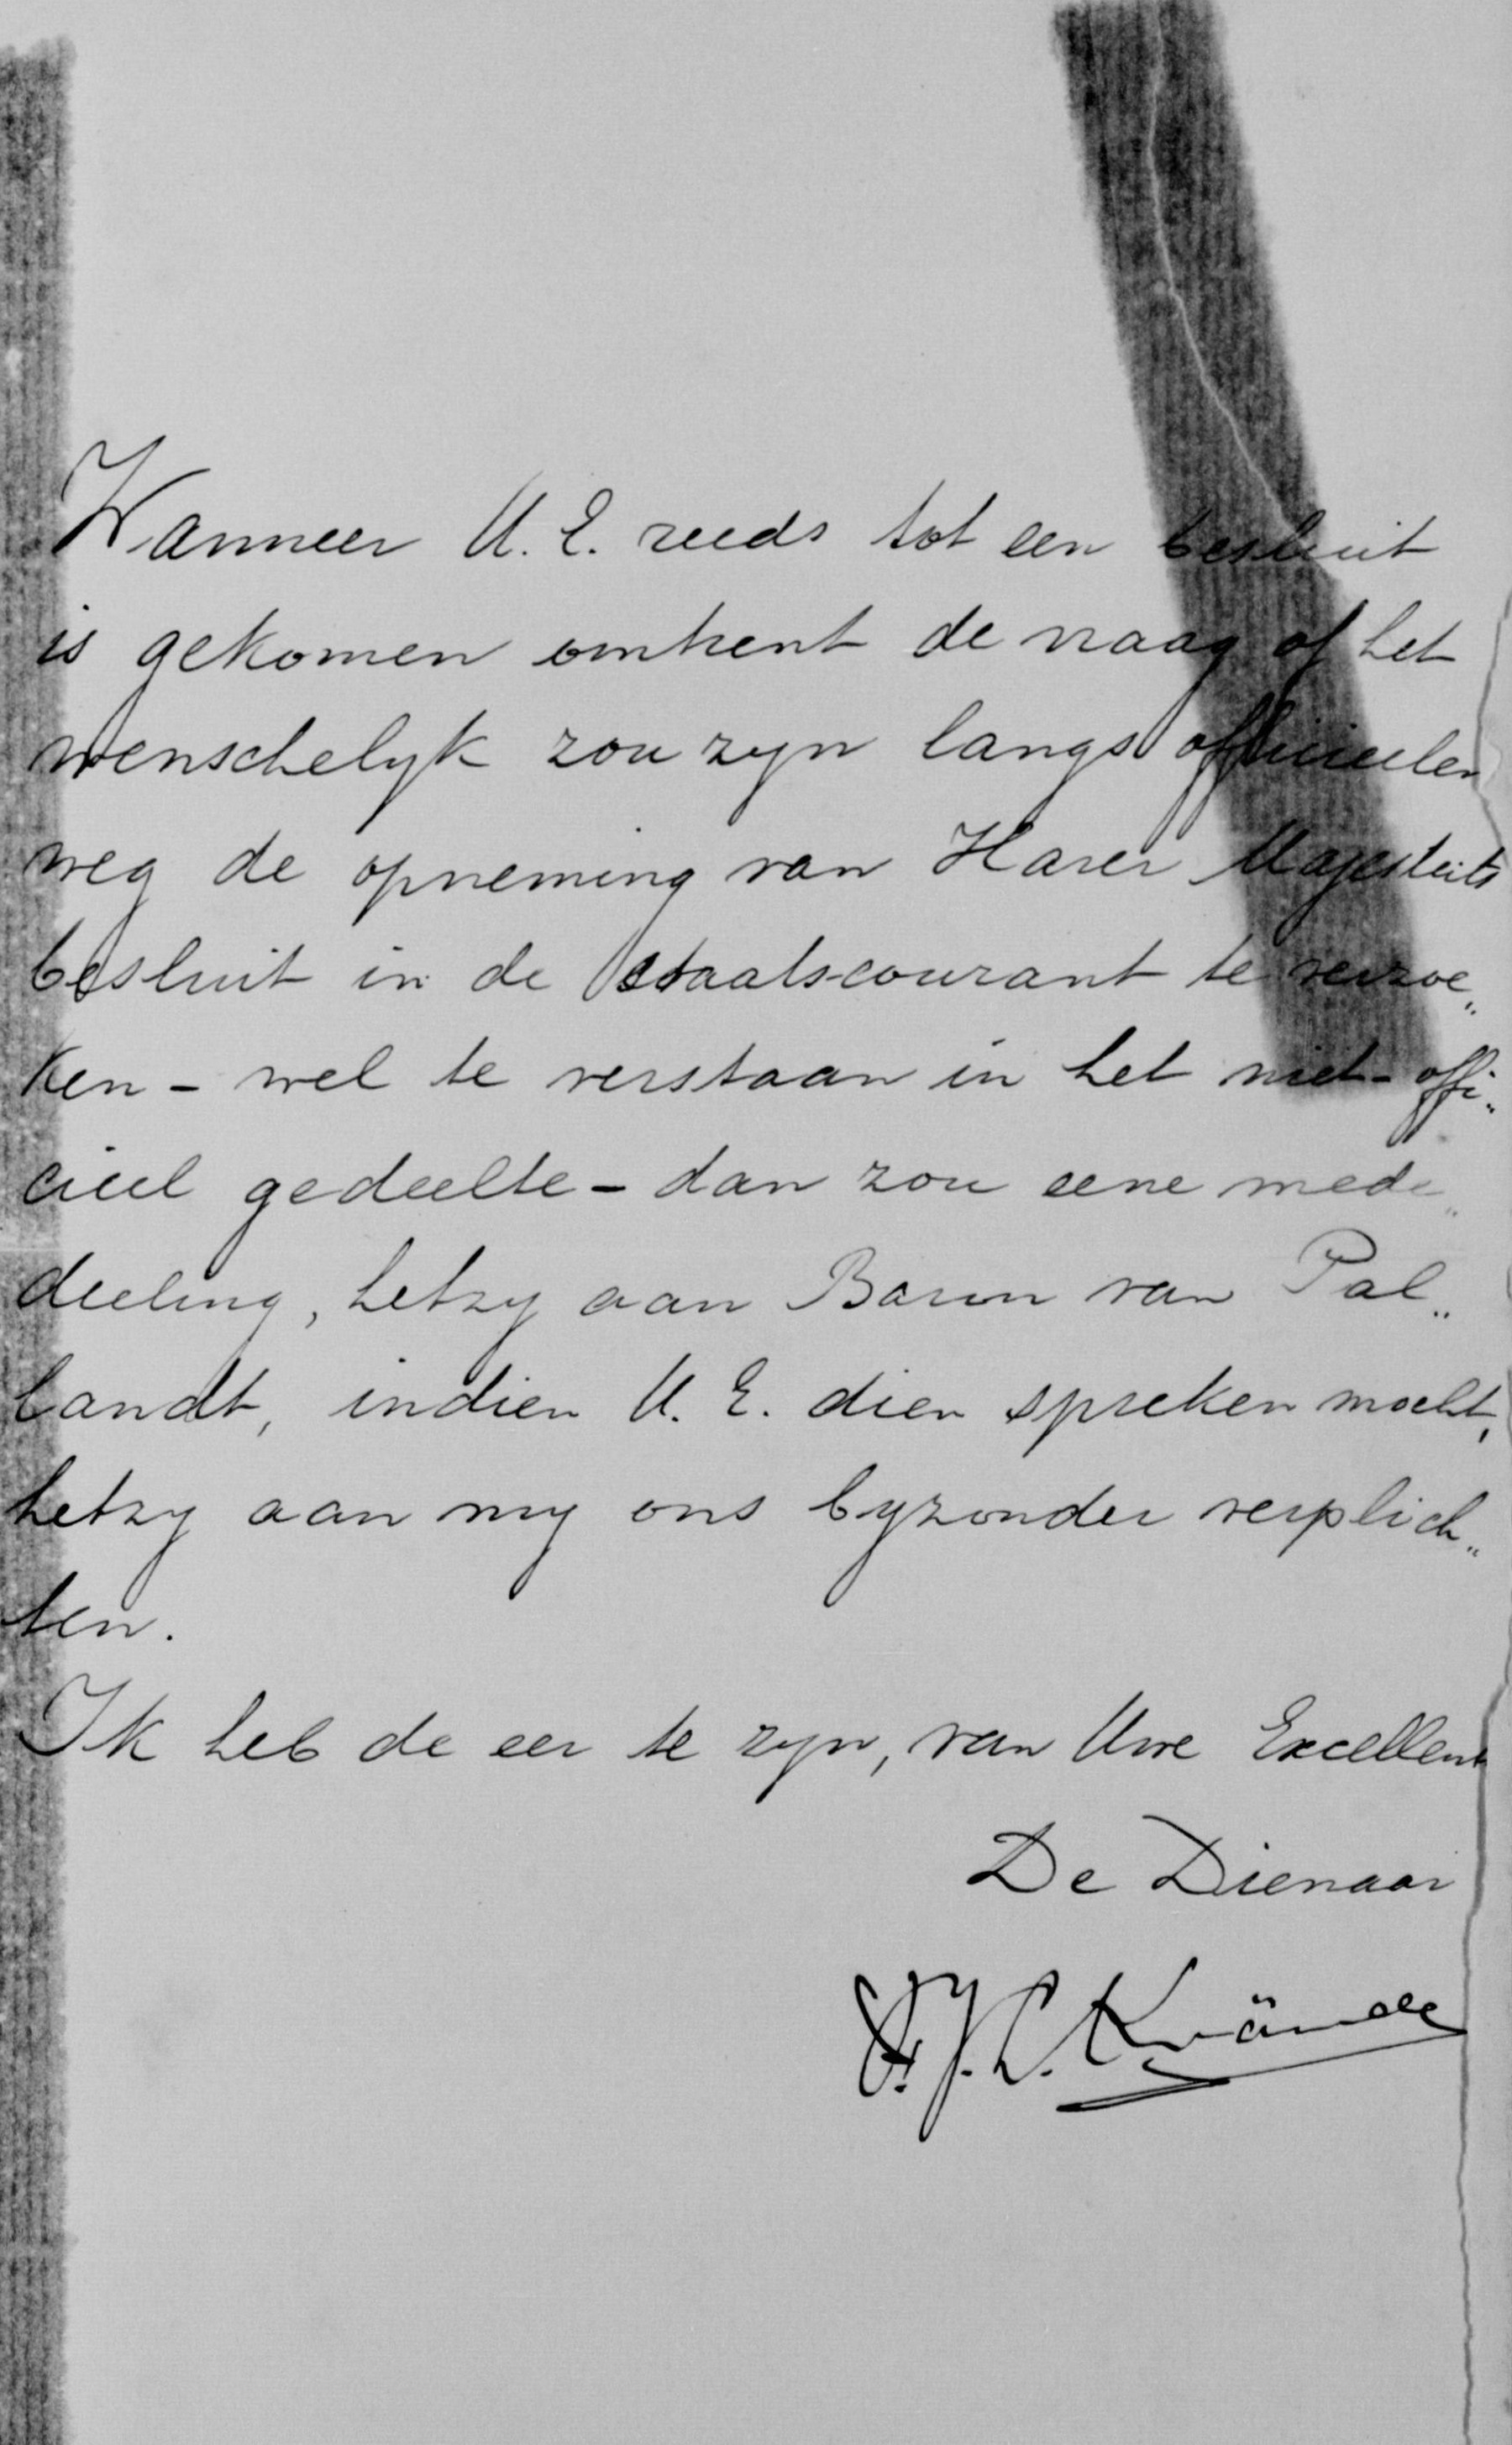 Wanneer U. E. reeds tot een besluit
is gekomen omtrent de vraag of het
wenschelyk zou zyn langs officieelen
weg de opneming van Harer Majesteits
besluit in de Staatscourant te verzoe„
ken - wel te verstaan in het niet-offi„
cieel gedeelte - dan zou eene mede„
deeling, hetzy aan Baron van Pal„
landt, indien U. E. dien spreken mocht,
hetzy aan my ons byzonder verplich„
ten.
Ik heb de eer te zyn, van Uwe Excellent
De Dienaar